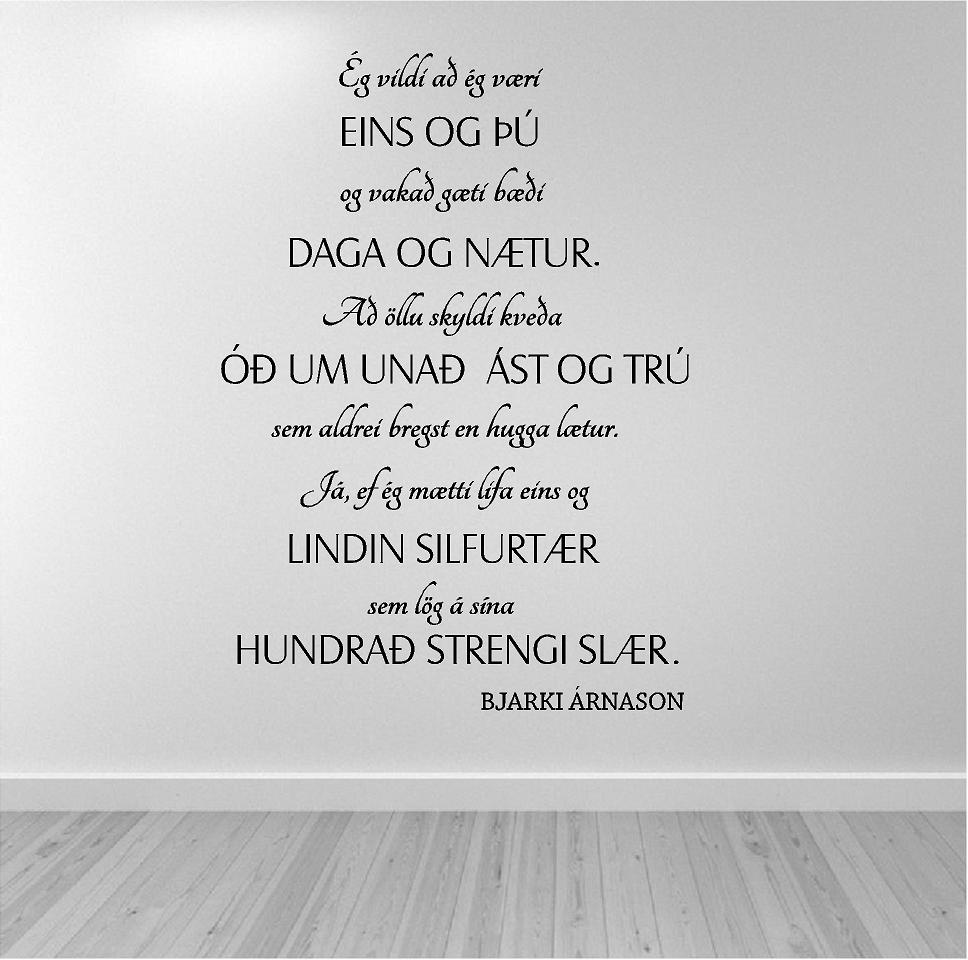 Ég vildi að ég væri
EINS OG ÞÚ
og vakað gæti bæði
DAGA OG NÆTUR.
Að öllu skyldi kveða
ÓÐ UM UNAÐ ÁST OG TRÚ
sem aldrei bregst en hugga lætur.
Já, ef ég mætti lifa eins og
LINDIN SILFURTÆR
sem lög á sína
HUNDRAÐ STRENGI SLÆR.
BJARKI ÁRNASON